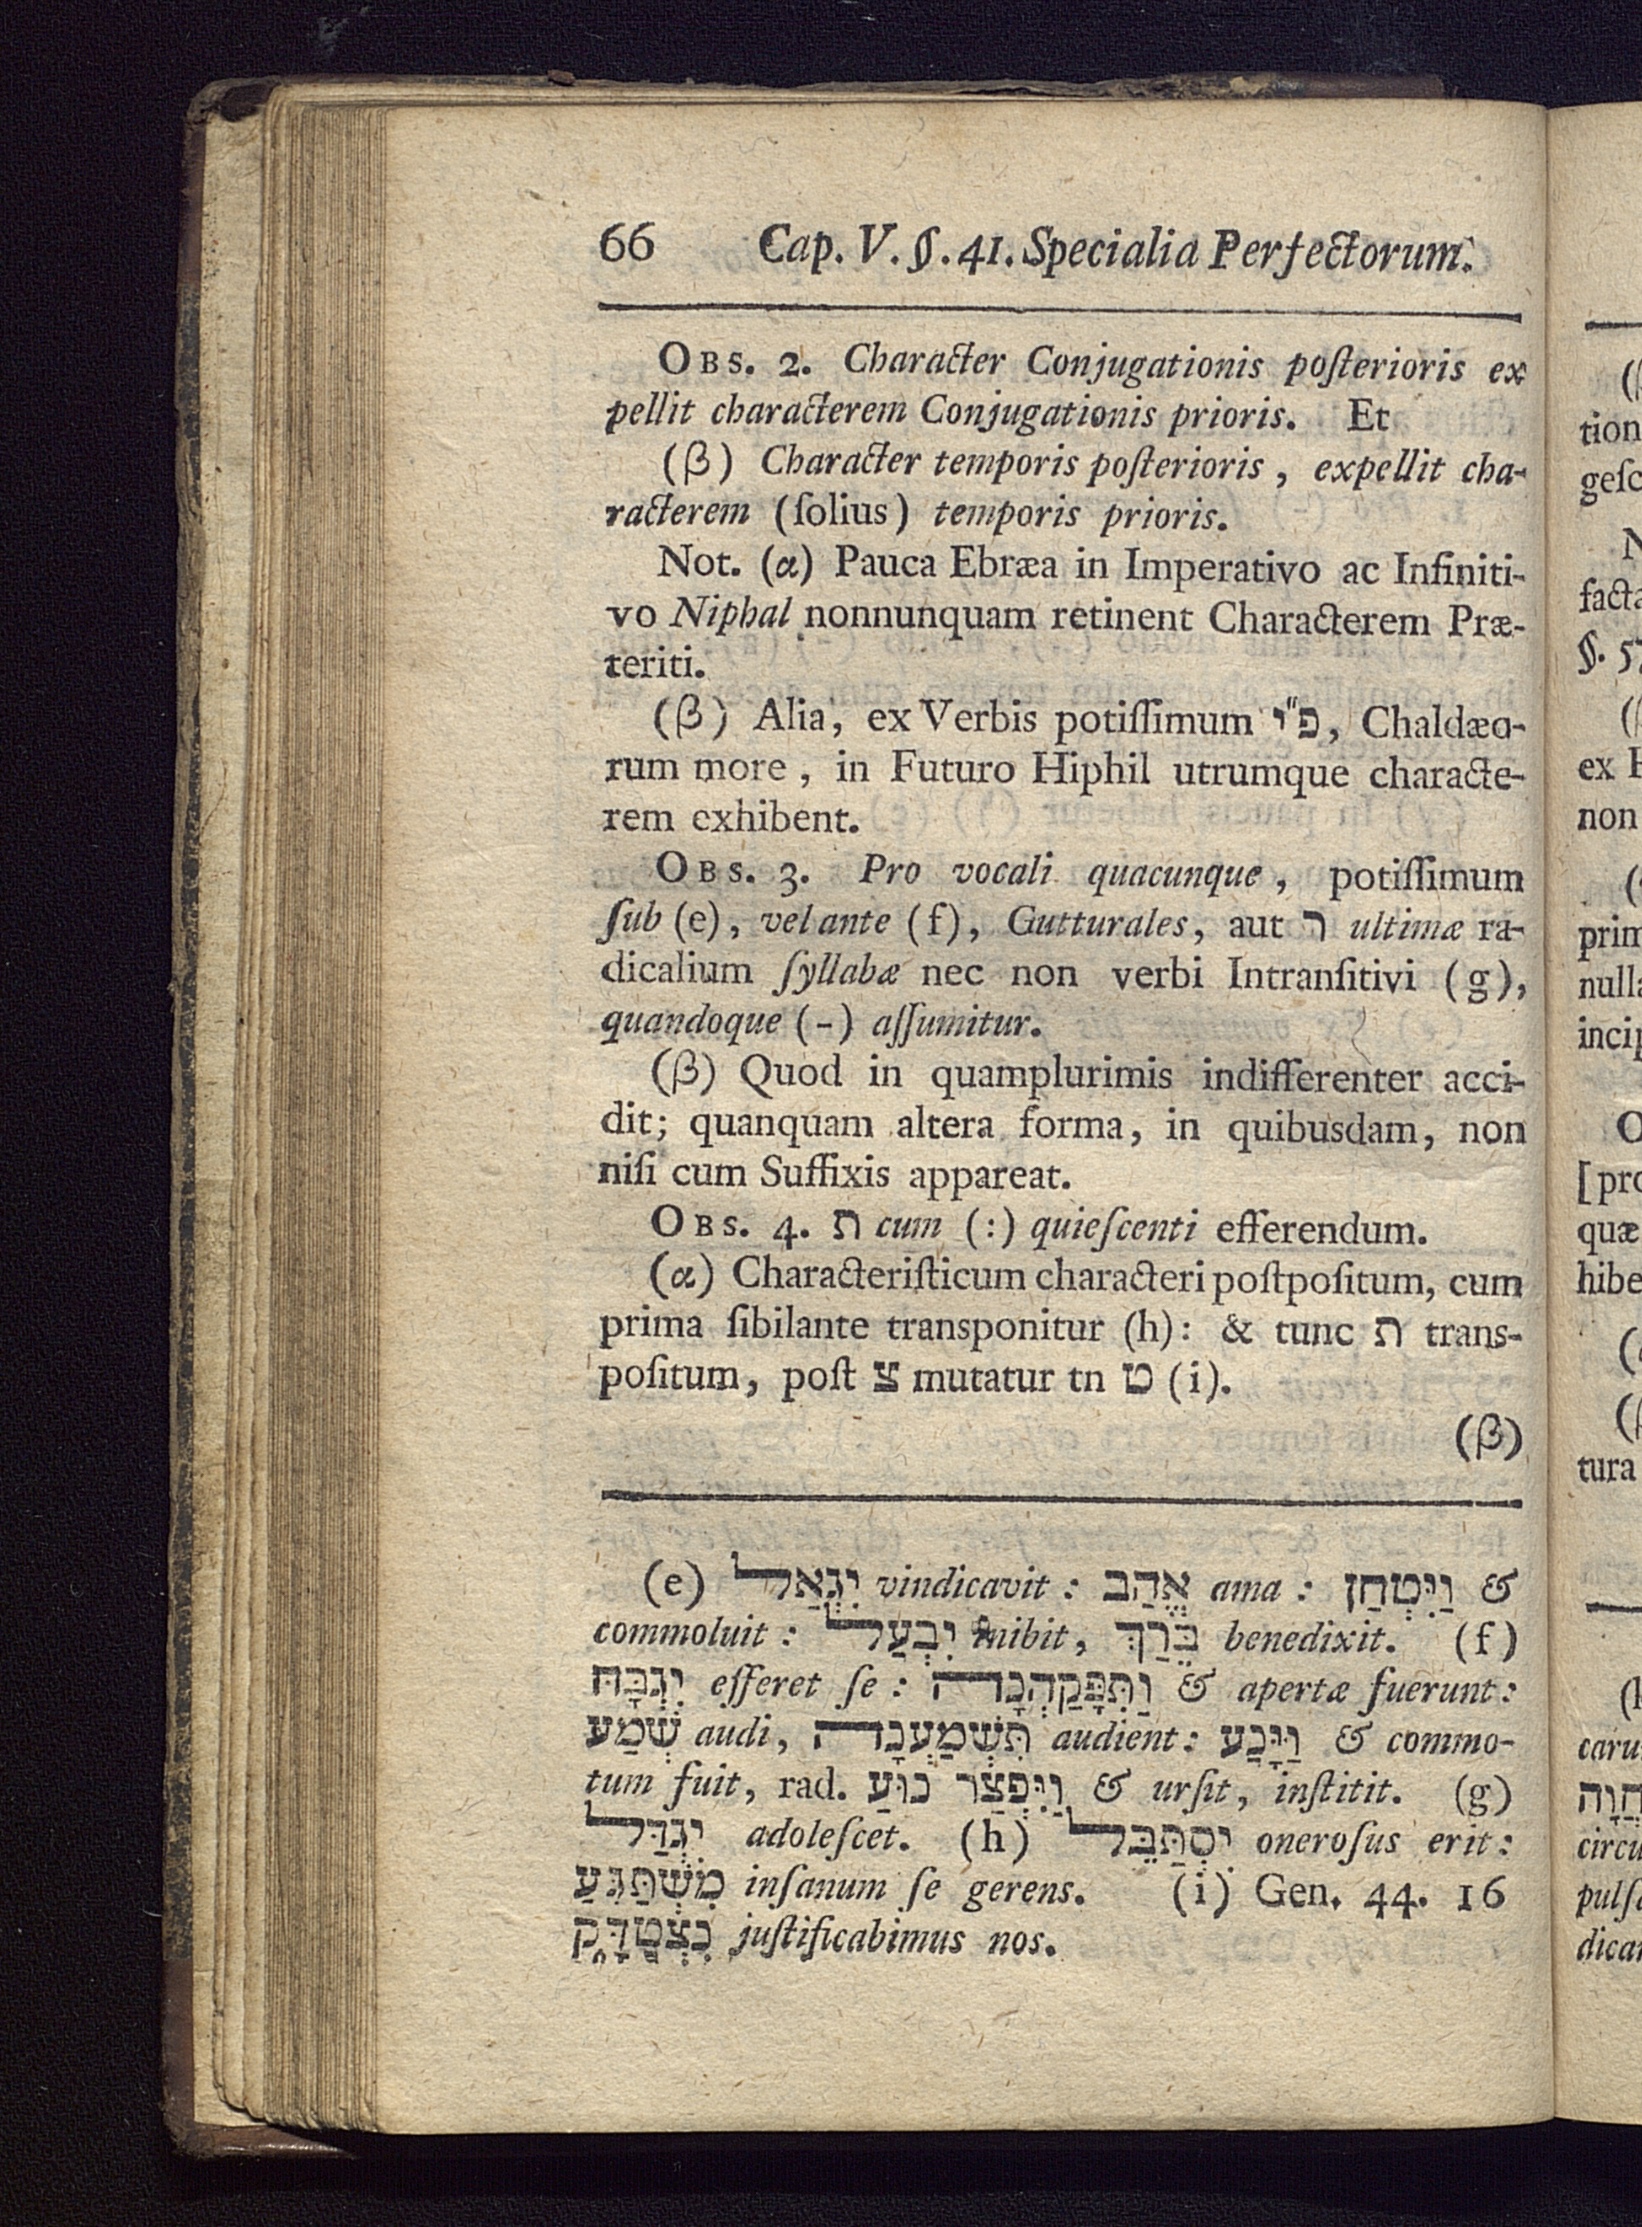 66 Cap. V. §. 41. Specialia Perfectorum.
OBS. 2. Character Conjugationis poſterioris ex
pellit characterem Conjugationis prioris. Et
(β) Character temporis poſterioris, expellit cha-
racterem (ſolius) temporis prioris.
Not. (α) Pauca Ebræa in Imperativo ac Infiniti-
vo Niphal nonnunquam retinent Characterem Præ-
teriti.
(β) Alia, ex Verbis potiſſimum פ״י, Chaldæo-
rum more, in Futuro Hiphil utrumque characte-
rem exhibent.
OBS. 3. Pro vocali quacunque, potiſſimum
ſub (e), vel ante (f), Gutturales, aut ר ultimæ ra-
dicalium ſyllabæ nec non verbi Intranſitivi (g),
quandoque (-) aſſumitur.
(β) Quod in quamplurimis indifferenter acci-
dit; quanquam altera forma, in quibusdam, non
niſi cum Suffixis appareat.
OBS. 4. ת cum (:) quieſcenti efferendum.
(α) Characteriſticum characteri poſtpoſitum, cum
prima ſibilante transponitur (h): & tunc ת trans-
poſitum, poſt צ mutatur tn ט (i).
(β)
(e) יִגְאַל vindicavit: אֱהַב ama: וַיִּטְחַן &
commoluit: יִבְעַל inibit, בֵּרַךְ benedixit. (f)
יִגְבַּהּ efferet ſe: וַתִּפָּקַחְנָה & apertæ fuerunt:
שְׁמַע audi, תִּשְׁמַעְנָה audient: וַיָּנַע & commo-
tum fuit, rad. נוּעַ וַיִּפְצַר & urſit, inſtitit. (g)
יִגְדַּל adoleſcet. (h) יִסְתַּבֵּל oneroſus erit:
מִשְׁתַּגֵּעַ inſanum ſe gerens. (i) Gen. 44. 16
נִצְטַדָּק juſtificabimus nos.